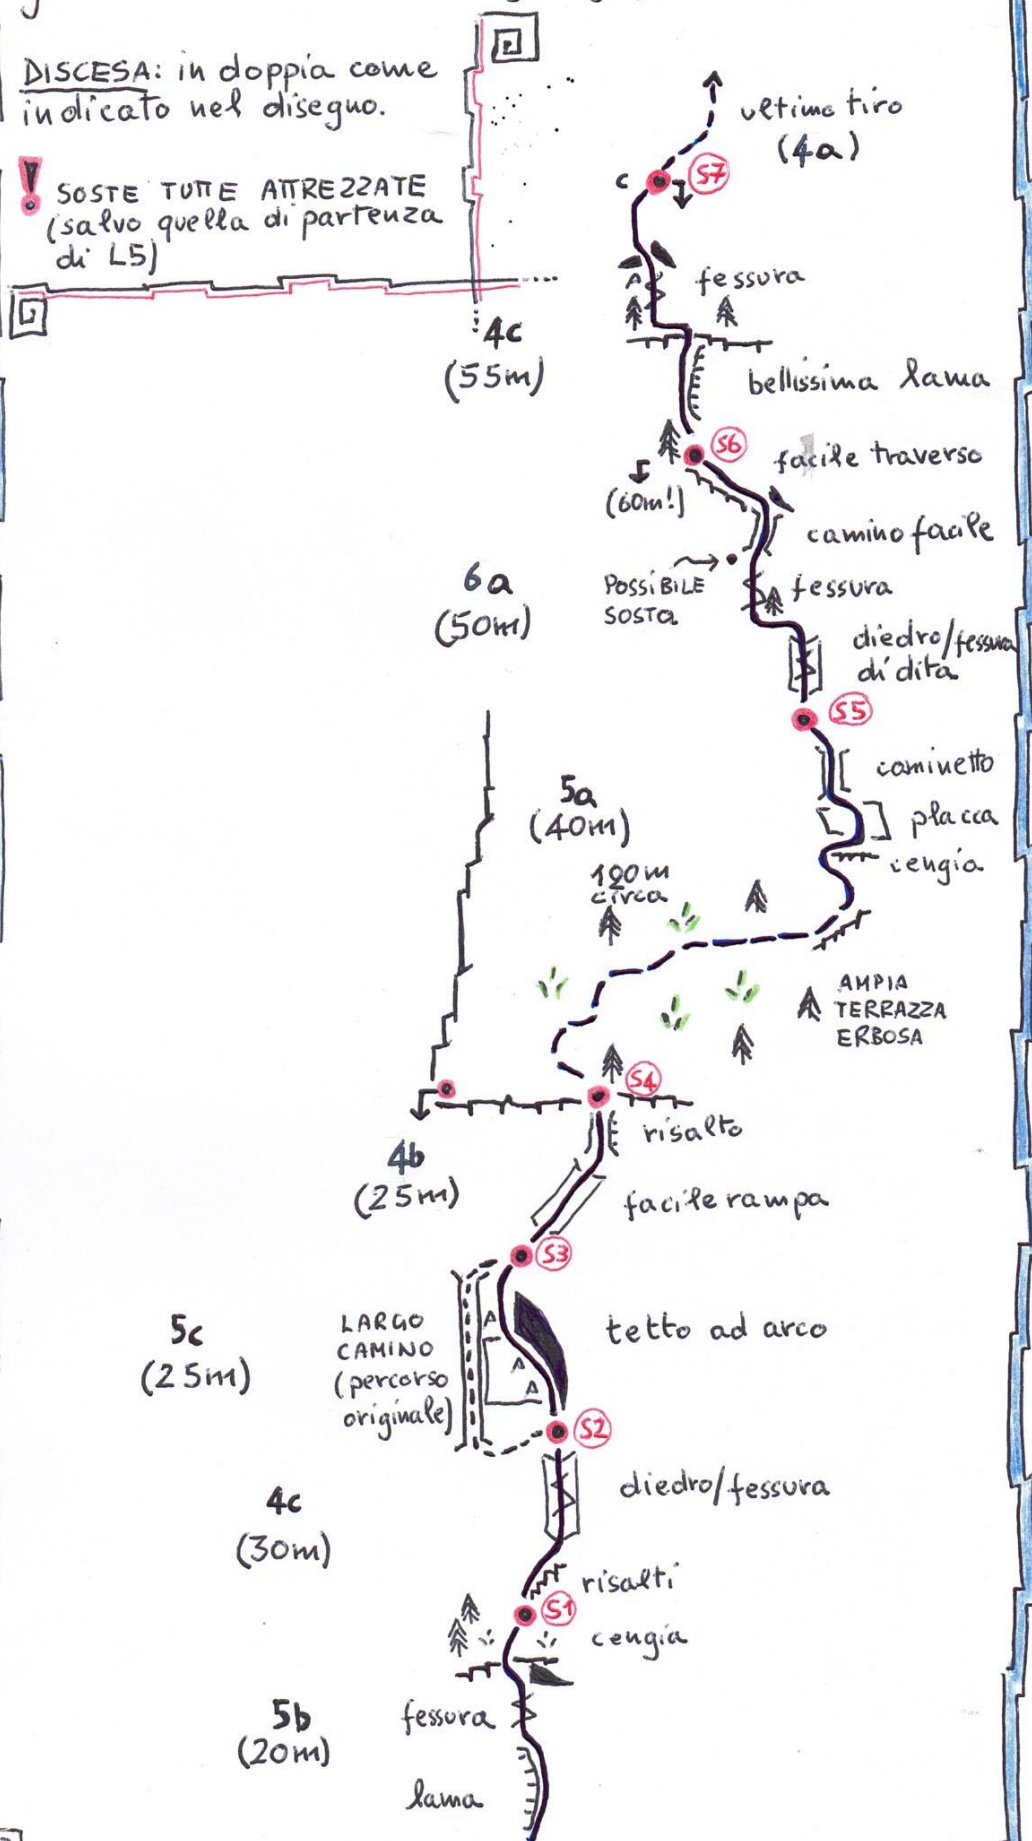 DISCESA: in doppia come
indicato nel disegno.
! SOSTE TUTTE ATTREZZATE
(salvo quella di partenza
di L5)
ultimo tiro
(4a)
S7
c
fessura
4c
(55m)
bellissima lama
S6
facile traverso
(60m!)
camino facile
6a
(50m)
POSSIBILE
SOSTA
fessura
diedro/fessura
di dita
S5
caminetto
5a
(40m)
placca
cengia
120m
circa
AMPIA
TERRAZZA
ERBOSA
S4
risalto
4b
(25m)
facile rampa
S3
5c
(25m)
LARGO
CAMINO
(percorso
originale)
tetto ad arco
S2
4c
(30m)
diedro/fessura
risalti
S1
cengia
5b
(20m)
fessura
lama